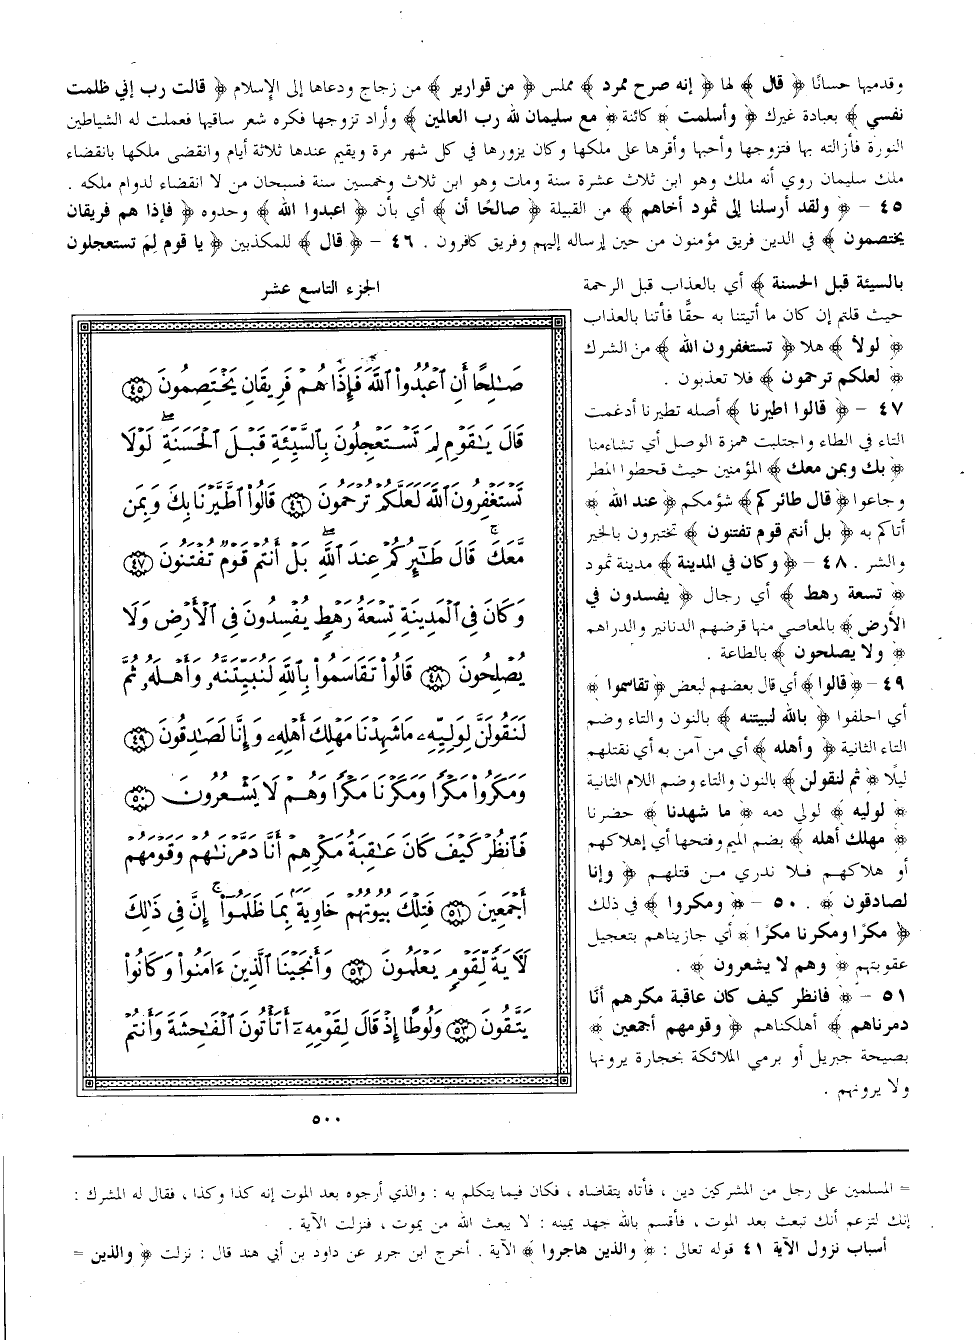 وقدميها حسانًا ﴿ قال ﴾ لها ﴿ إنه صرح ممرد ﴾ مملس ﴿ من قوارير ﴾ من زجاج ودعاها إلى الإسلام ﴿ قالت رب إني ظلمت
نفسي ﴾ بعبادة غيرك ﴿ وأسلمت ﴾ كائنة ﴿ مع سليمان لله رب العالمين ﴾ وأراد تزوجها فكره شعر ساقيها فعملت له الشياطين
النورة فأزالته بها فتزوجها وأحبها وأقرها على ملكها وكان يزورها في كل شهر مرة ويقيم عندها ثلاثة أيام وانقضى ملكها بانقضاء
ملك سليمان روي أنه ملك وهو ابن ثلاث عشرة سنة ومات وهو ابن ثلاث وخمسين سنة فسبحان من لا انقضاء لدوام ملكه .
٤٥ - ﴿ ولقد أرسلنا إلى ثمود أخاهم ﴾ من القبيلة ﴿ صالحًا أن ﴾ أي بأن ﴿ اعبدوا الله ﴾ وحدوه ﴿ فإذا هم فريقان
يختصمون ﴾ في الدين فريق مؤمنون من حين إرساله إليهم وفريق كافرون . ٤٦ - ﴿ قال ﴾ للمكذبين ﴿ يا قوم لِمَ تستعجلون
بالسيئة قبل الحسنة ﴾ أي بالعذاب قبل الرحمة
حيث قلتم إن كان ما أتيتنا به حقًّا فأتنا بالعذاب
﴿ لولا ﴾ هلا ﴿ تستغفرون الله ﴾ من الشرك
﴿ لعلكم ترحمون ﴾ فلا تعذبون .
٤٧ - ﴿ قالوا اطيرنا ﴾ أصله تطيرنا أدغمت
التاء في الطاء واجتلبت همزة الوصل أي تشاءمنا
﴿ بك وبمن معك ﴾ المؤمنين حيث قحطوا المطر
وجاعوا ﴿ قال طائركم ﴾ شؤمكم ﴿ عند الله ﴾
أتاكم به ﴿ بل أنتم قوم تفتنون ﴾ تختبرون بالخير
والشر . ٤٨ - ﴿ وكان في المدينة ﴾ مدينة ثمود
﴿ تسعة رهط ﴾ أي رجال ﴿ يفسدون في
الأرض ﴾ بالمعاصي منها قرضهم الدنانير والدراهم
﴿ ولا يصلحون ﴾ بالطاعة .
٤٩ - ﴿ قالوا ﴾ أي قال بعضهم لبعض ﴿ تقاسموا ﴾
أي احلفوا ﴿ بالله لنبيتنه ﴾ بالنون والتاء وضم
التاء الثانية ﴿ وأهله ﴾ أي من آمن به أي نقتلهم
ليلًا ﴿ ثم لنقولن ﴾ بالنون والتاء وضم اللام الثانية
﴿ لوليه ﴾ لولي دمه ﴿ ما شهدنا ﴾ حضرنا
﴿ مهلك أهله ﴾ بضم الميم وفتحها أي إهلاكهم
أو هلاكهم فلا ندري من قتلهم ﴿ وإنا
لصادقون ﴾ . ٥٠ - ﴿ ومكروا ﴾ في ذلك
﴿ مكرًا ومكرنا مكرًا ﴾ أي جازيناهم بتعجيل
عقوبتهم ﴿ وهم لا يشعرون ﴾ .
٥١ - ﴿ فانظر كيف كان عاقبة مكرهم أنَّا
دمرناهم ﴾ أهلكناهم ﴿ وقومهم أجمعين ﴾
بصيحة جبريل أو برمي الملائكة بحجارة يرونها
ولا يرونهم .
الجزء التاسع عشر
صَٰلِحًا أَنِ ٱعْبُدُوا۟ ٱللَّهَ فَإِذَا هُمْ فَرِيقَانِ يَخْتَصِمُونَ ٤٥
قَالَ يَٰقَوْمِ لِمَ تَسْتَعْجِلُونَ بِٱلسَّيِّئَةِ قَبْلَ ٱلْحَسَنَةِ ۖ لَوْلَا
تَسْتَغْفِرُونَ ٱللَّهَ لَعَلَّكُمْ تُرْحَمُونَ ٤٦ قَالُوا۟ ٱطَّيَّرْنَا بِكَ وَبِمَن
مَّعَكَ ۚ قَالَ طَٰٓئِرُكُمْ عِندَ ٱللَّهِ ۖ بَلْ أَنتُمْ قَوْمٌ تُفْتَنُونَ ٤٧
وَكَانَ فِى ٱلْمَدِينَةِ تِسْعَةُ رَهْطٍ يُفْسِدُونَ فِى ٱلْأَرْضِ وَلَا
يُصْلِحُونَ ٤٨ قَالُوا۟ تَقَاسَمُوا۟ بِٱللَّهِ لَنُبَيِّتَنَّهُۥ وَأَهْلَهُۥ ثُمَّ
لَنَقُولَنَّ لِوَلِيِّهِۦ مَا شَهِدْنَا مَهْلِكَ أَهْلِهِۦ وَإِنَّا لَصَٰدِقُونَ ٤٩
وَمَكَرُوا۟ مَكْرًا وَمَكَرْنَا مَكْرًا وَهُمْ لَا يَشْعُرُونَ ٥٠
فَٱنظُرْ كَيْفَ كَانَ عَٰقِبَةُ مَكْرِهِمْ أَنَّا دَمَّرْنَٰهُمْ وَقَوْمَهُمْ
أَجْمَعِينَ ٥١ فَتِلْكَ بُيُوتُهُمْ خَاوِيَةًۢ بِمَا ظَلَمُوٓا۟ ۚ إِنَّ فِى ذَٰلِكَ
لَءَايَةً لِّقَوْمٍ يَعْلَمُونَ ٥٢ وَأَنجَيْنَا ٱلَّذِينَ ءَامَنُوا۟ وَكَانُوا۟
يَتَّقُونَ ٥٣ وَلُوطًا إِذْ قَالَ لِقَوْمِهِۦٓ أَتَأْتُونَ ٱلْفَٰحِشَةَ وَأَنتُمْ
٥٠٠
= المسلمين على رجل من المشركين دين ، فأتاه يتقاضاه ، فكان فيما يتكلم به : والذي أرجوه بعد الموت إنه كذا وكذا ، فقال له المشرك :
إنك لتزعم أنك تبعث بعد الموت ، فأقسم بالله جهد يمينه : لا يبعث الله من يموت ، فنزلت الآية .
أسباب نزول الآية ٤١ قوله تعالى : ﴿ والذين هاجروا ﴾ الآية . أخرج ابن جرير عن داود بن أبي هند قال : نزلت ﴿ والذين =